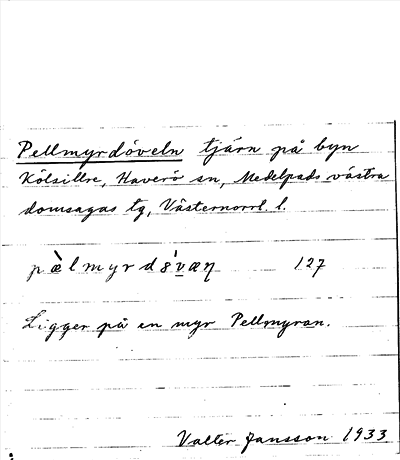 Pellmyrdöveln tjärn på byn
Kölsillre, Haverö sn, Medelpads västra
domsagas tg, Västernorrl. l.
127
Ligger på en myr Pellmyran.
Valter Jansson 1933